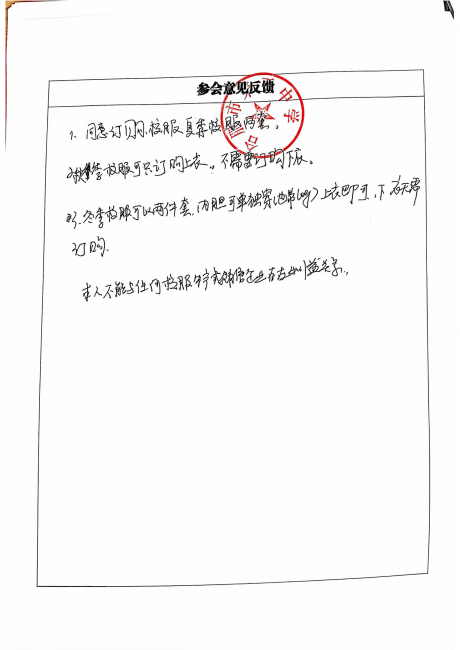 参会意见反馈
市 中学
1、同意订购校服夏季校服两套。
2、秋季校服可只订购上衣,不需要订购下衣。
3、冬季校服可以两件套,内胆可单独穿 上衣即可,下衣无需
订购.
本人不能与任何校服 企业存在 利益关系.